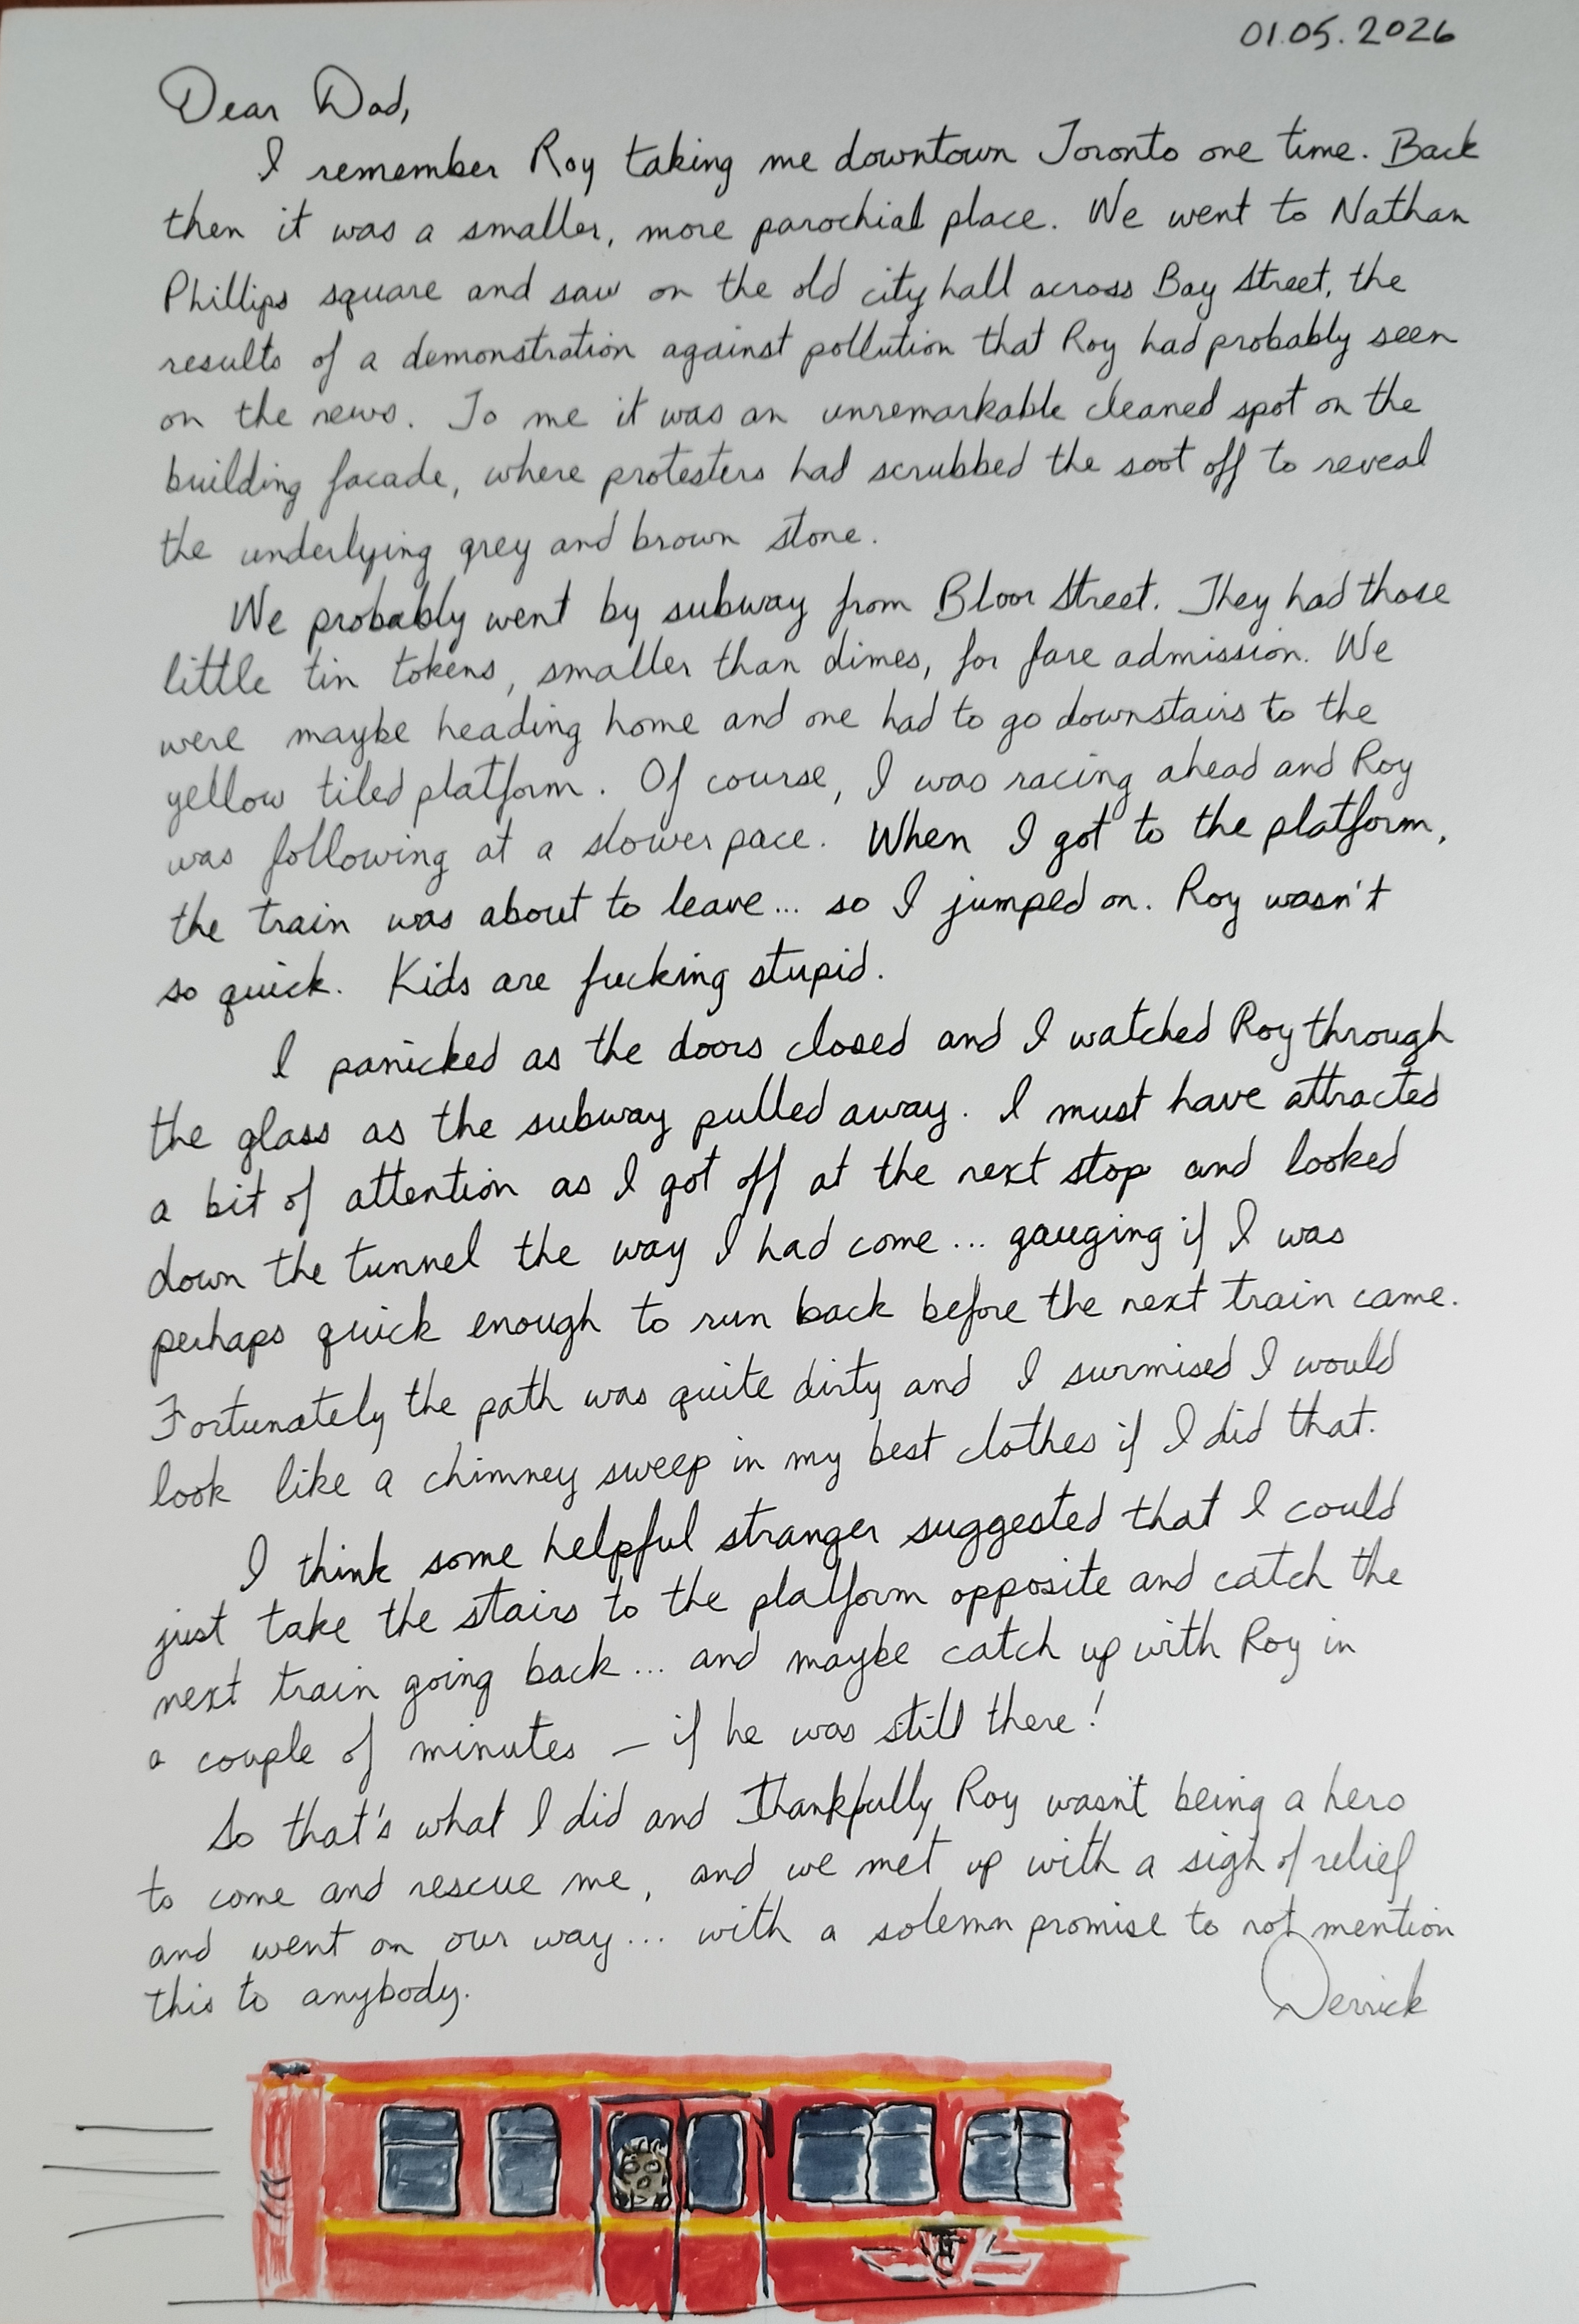 01.05.2026
Dear Dad,
I remember Roy taking me downtown Toronto one time. Back
then it was a smaller, more parochial place. We went to Nathan
Phillips square and saw on the old city hall across Bay Street, the
results of a demonstration against pollution that Roy had probably seen
on the news. To me it was an unremarkable cleaned spot on the
building facade, where protesters had scrubbed the soot off to reveal
the underlying grey and brown stone.
We probably went by subway from Bloor Street. They had those
little tin tokens, smaller than dimes, for fare admission. We
were maybe heading home and one had to go downstairs to the
yellow tiled platform. Of course, I was racing ahead and Roy
was following at a slower pace. When I got to the platform,
the train was about to leave... so I jumped on. Roy wasn't
so quick. Kids are fucking stupid.
I panicked as the doors closed and I watched Roy through
the glass as the subway pulled away. I must have attracted
a bit of attention as I got off at the next stop and looked
down the tunnel the way I had come... gauging if I was
perhaps quick enough to run back before the next train came.
Fortunately the path was quite dirty and I surmised I would
look like a chimney sweep in my best clothes if I did that.
I think some helpful stranger suggested that I could
just take the stairs to the platform opposite and catch the
next train going back... and maybe catch up with Roy in
a couple of minutes – if he was still there!
So that's what I did and thankfully Roy wasn't being a hero
to come and rescue me, and we met up with a sigh of relief
and went on our way... with a solemn promise to not mention
this to anybody.
Derrick